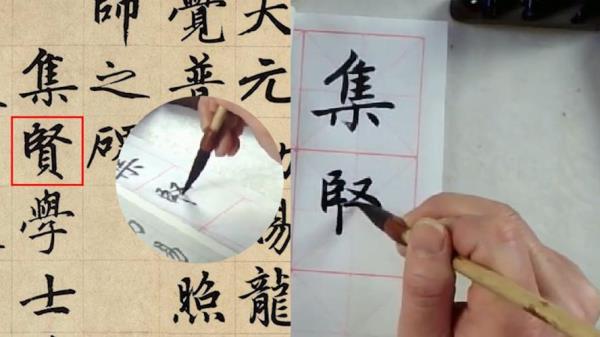 大元 賜龍
覺普 照
師之碑
集賢學士
集
臤